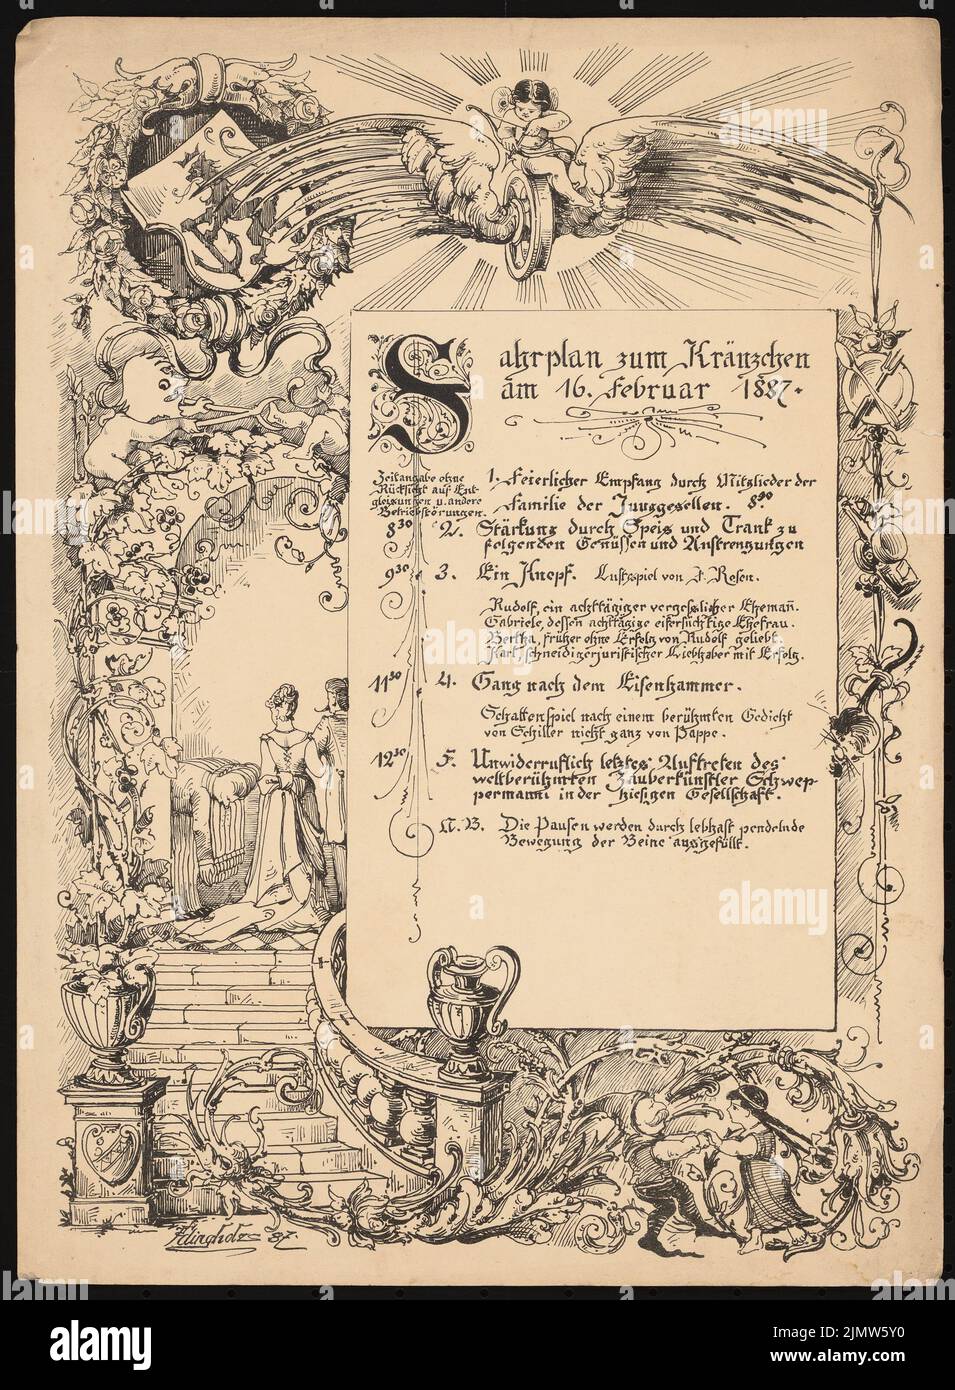 Fahrplan zum Kränzchen
am 16. Februar 1887.
Zeitangabe ohne
Rücksicht auf Ent-
gleisungen u. andere
Betriebstörungen.
1. Feierlicher Empfang durch Mitglieder der
Familie der Junggesellen.
8³⁰ 2. Stärkung durch Speis und Trank zu
folgenden Genüssen und Anstrengungen
9³⁰ 3. Ein Knopf. Lustspiel von J. Rosen.
Rudolf, ein achttägiger vergesslicher Ehemañ.
Gabriele, dessen achttägige eifersüchtige Ehefrau.
Bertha, früher ohne Erfolg von Rudolf geliebt.
Karl, schneidiger juristischer Liebhaber mit Erfolg.
11³⁰ 4. Gang nach dem Eisenhammer.
Schattenspiel nach einem berühmten Gedicht
von Schiller nicht ganz von Pappe.
12³⁰ 5. Unwiderruflich letztes Auftreten des
weltberühmten Zauberkünstler Schwep-
permanni in der hiesigen Gesellschaft.
N. B. Die Pausen werden durch lebhaft pendelnde
Bewegung der Beine ausgefüllt.
87.
alamy
Image ID: 2JMW5Y0
www.alamy.com